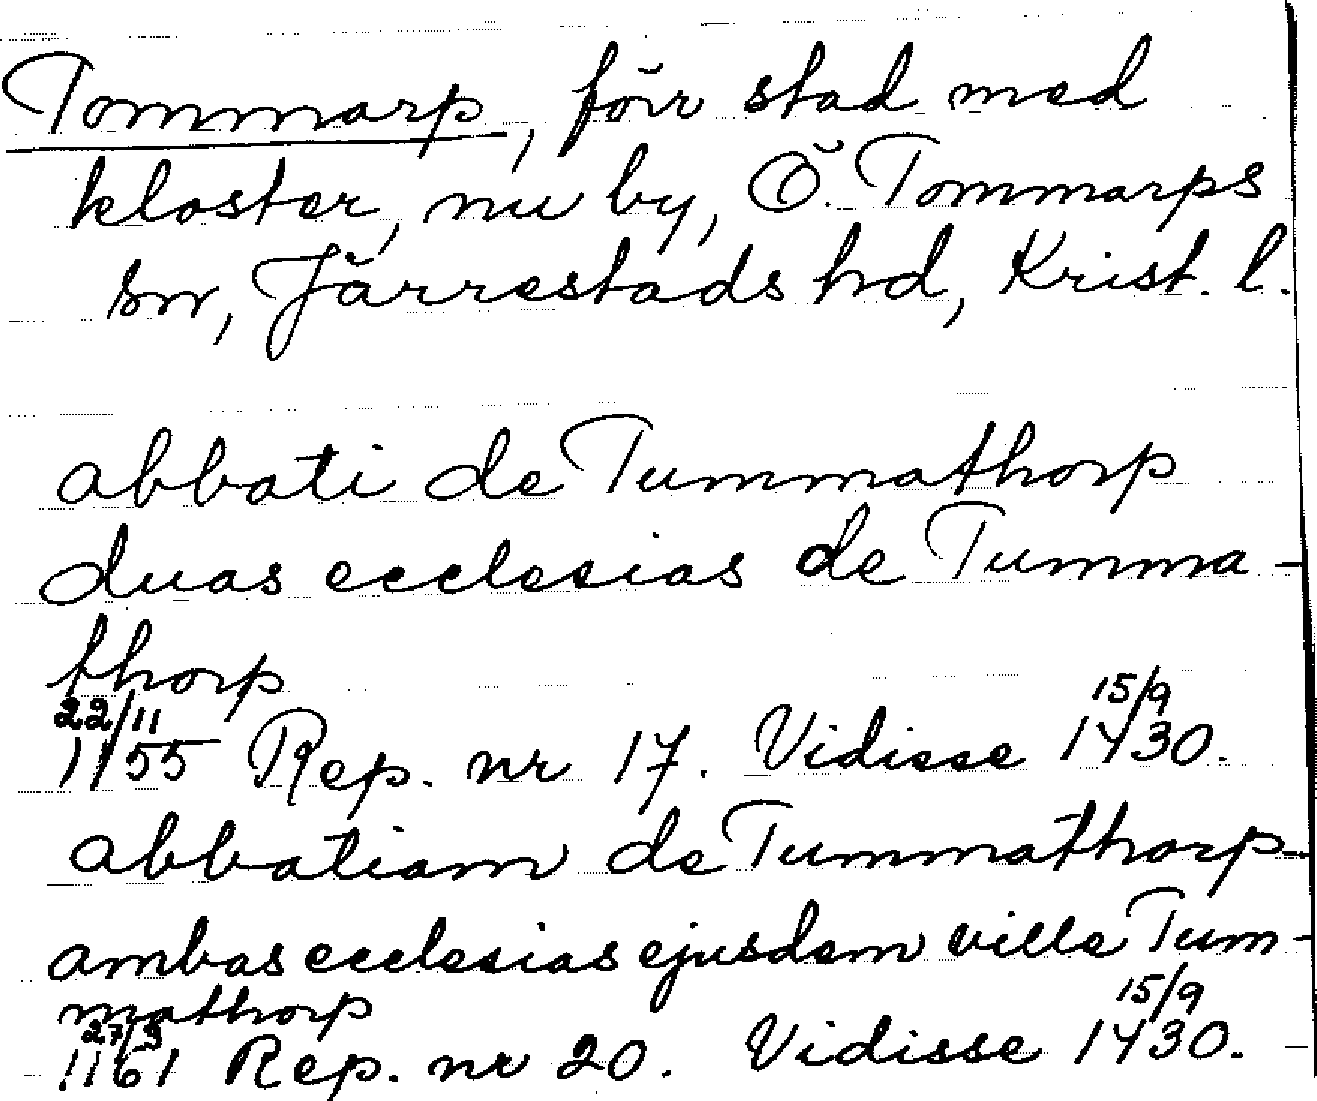 Tommarp, förr stad med
kloster, nu by, Ö. Tommarps
sn, Järrestads hd, Krist. l.
abbati de Tummathorp
duas ecclesias de Tumma-
thorp
22/11 15/9
1155 Rep. nr 17. Vidisse 1430.
abbatiam de Tummathorp
ambas ecclesias ejusdem ville Tum-
mathorp
27/3 15/9
1161 Rep. nr 20. Vidisse 1430.